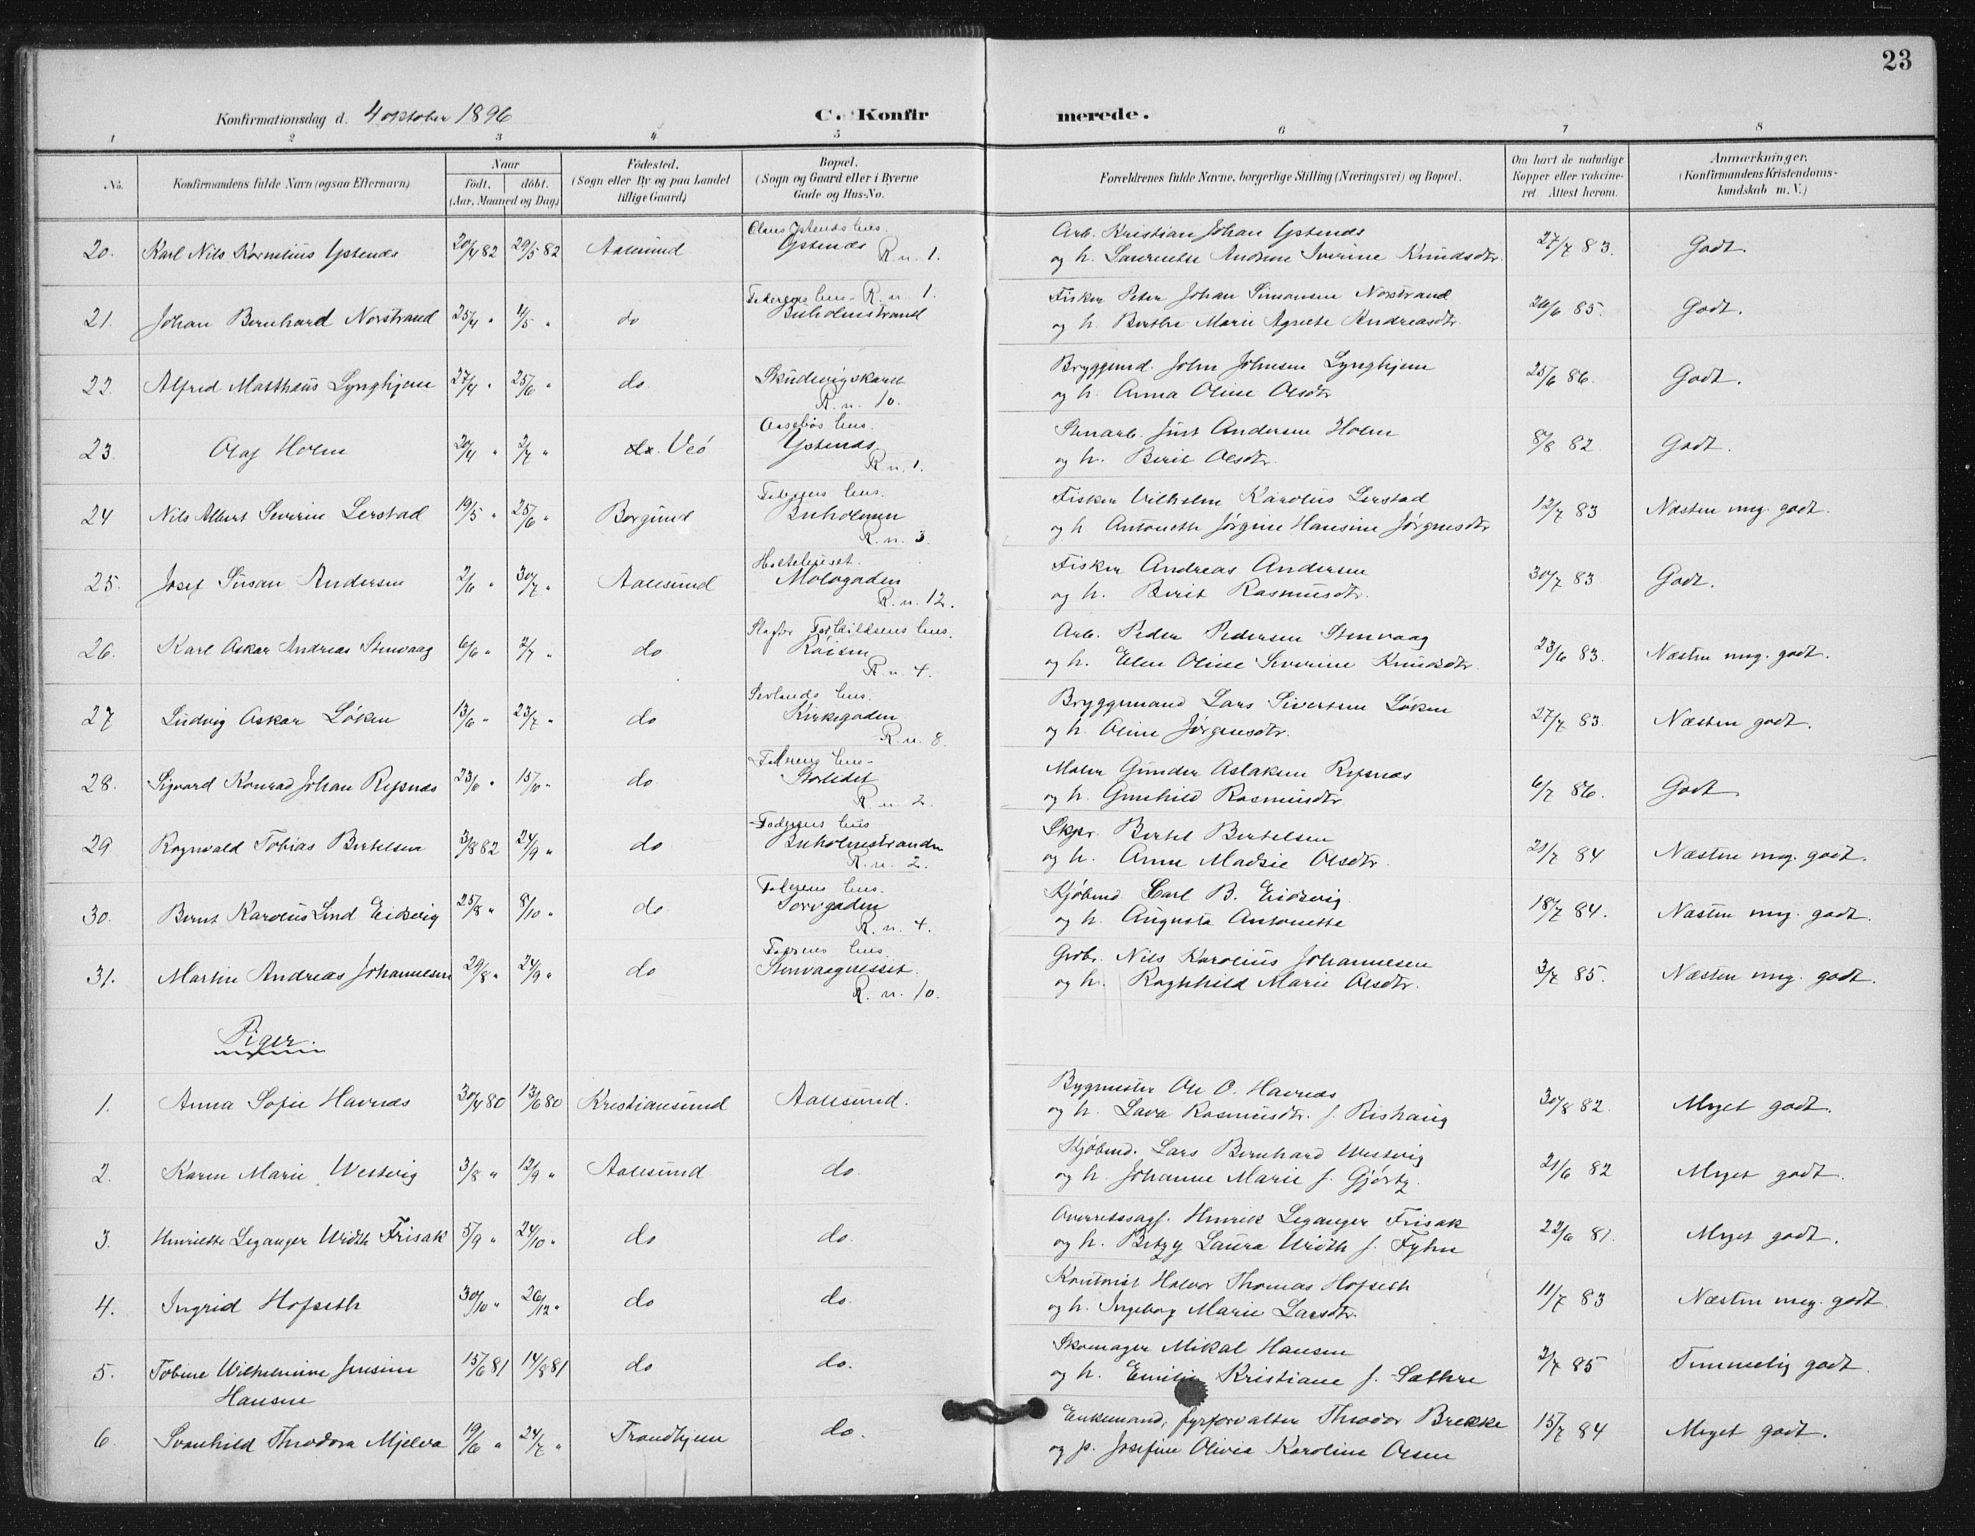 23
Konfirmationsdag d. 4 oktober 1896
C. Konfirmerede.
1 2 3 4 5 6 7 8
No. Konfirmandens fulde Navn (ogsaa Efternavn) Naar født, døbt. (Aar, Maaned og Dag) Födested. (Sogn eller By og paa Landet tillige Gaard) Bopæl. (Sogn og Gaard eller i Byerne Gade og Hus-No. Forældrenes fulde Navne, borgerlige Stilling (Næringsvei) og Bopæl. Om havt de naturlige Kopper eller vakcineret. Attest herom. Anmærkninger. (Konfirmandens Kristendomskundskab m. V.)
20. Karl Nils Kornelius Ystenes 20/4 82 29/5 82 Aalesund Claus Ystenes hus Ystenes R. n. 1. Arb. Kristian Johan Ystenes
og h. Laurentse Andrine Iverine Knudsdtr. 27/7 83. Godt.
21. Johan Bernhard Norstrand 25/4 " 4/5 " do Faderens hus - R. n. 1. Buholmstrand Fisker Peter Johan Simonsen Norstrand
og h. Berthe Marie Agnete Andreasdtr. 26/6 85. Godt.
22. Alfred Matthæus Lynghjem 27/4 " 25/6 " do. Skudevigskaret R. n. 10. Bryggemd. John Johnsen Lynghjem
og h. Anna Oline Olsdtr 25/6 86. Godt.
23. Olaf Holm 20/4 " 2/7 " do. Veö Aasebøs hus. Ystenes. R. n. 1. Stenarb. Just Andersen Holm
og h. Berit Olsdtr. 8/8 82 Godt.
24 Nils Albert Severin Lerstad 19/5 " 25/6 " Borgund Faderens hus. Buholmen R. n. 3. Fisker Vilhelm Karolus Lerstad
og h Antonette Jørgine Hansine Jørgensdtr 12/7 83 Næsten meg. godt.
25. Josef Susan Andersen 2/6 " 30/7 " Aalesund Mologaden R. n. 12. Fisker Andreas Andersen
og h. Berit Rasmusdtr. 30/7 83 Godt.
26. Karl Oskar Andreas Stenvaag 6/6 " 2/7 " do Slagter hus. Røisen R. n. 4. Arb. Peder Pedersen Stenvaag
og h. Elen Oline Severine Knudsdtr. 23/6 83. Næsten meg. godt.
27 Ludvig Oskar Løken 13/6 " 23/7 " do hus. Kirkegaden R. n. 8. Bryggemand Lars Sivertsen Løken
og h. Oline Jørgensdtr. 27/7 83. Næsten godt.
28. Sigvard Konrad Johan Refsnæs 23/6 " 15/10 " do Faderens hus - Storlidet R. n. 2. Maler Gunder Aslaksen Refsnæs
og h. Gunhild Rasmusdtr. 6/7 86. Godt
29 Ragnvald Tobias Bertelsen 3/8 82 24/9 " do Faderens hus Buholmstranden R. n. 2. Skpr. Bertel Bertelsen
og h. Anne Madsie Olsdtr. 21/7 84 Næsten meg. godt.
30. Bernt Karolus Lind Eidsvig 25/8 " 8/10 " do Faderens hus. Torvgaden R. n. 4. Kjøbmd. Carl B. Eidsvig
og h. Augusta Antonette 18/7 84. Næsten meg. godt.
31. Martin Andreas Johannesen 29/8 " 24/9 " do Faderens hus Stenvaagneset. R. n. 10. Grovbr. Nils Karolius Johannesen
og h. Raghhild Marie Olsdtr. 3/7 85. Næsten meg. godt.
Piger.
1. Anna Sofie Havnæs 30/4 80 13/6 80 Kristiansund Aalesund. Bygmester Ole O. Havnæs
og h. Lava Rasmusdtr. f. Rishaug 30/8 82. Meget godt.
2. Karen Marie Westvig 3/8 " 12/9 " Aalesund do. Kjøbmd. Lars Bernhard Westvig
og h. Johanne Marie f. Gjørtz. 21/6 82 Meget godt.
3. Henriette Leganger Wridth Frisak 5/9 " 24/10 " do do. Overretssagf. Henrik Leganger Frisak
og h. Betzy Laura Wridth f. Fyhn 22/6 81. Meget godt.
4. Ingrid Hofseth 30/10 " 26/12 " do do. Kontorist Halvor Thomas Hofseth
og h. Ingeborg Marie Larsdtr. 11/7 83 Næsten meg. godt.
5. Tobine Wilhelmine Jensine 15/6 81 14/8 81 do do. Skomager Mikal Hansen
Hansen og h. Emilie Kristiane f. Sæthre 2/7 85 Temmelig godt.
6. Svanhild Theodora Mjelva 19/6 " 24/7 " Trondhjem do. Enkemand, fyrforvalter Theodor Brekke
og p. Josefine Olivia Karoline Olsen 15/7 84 Meget godt.